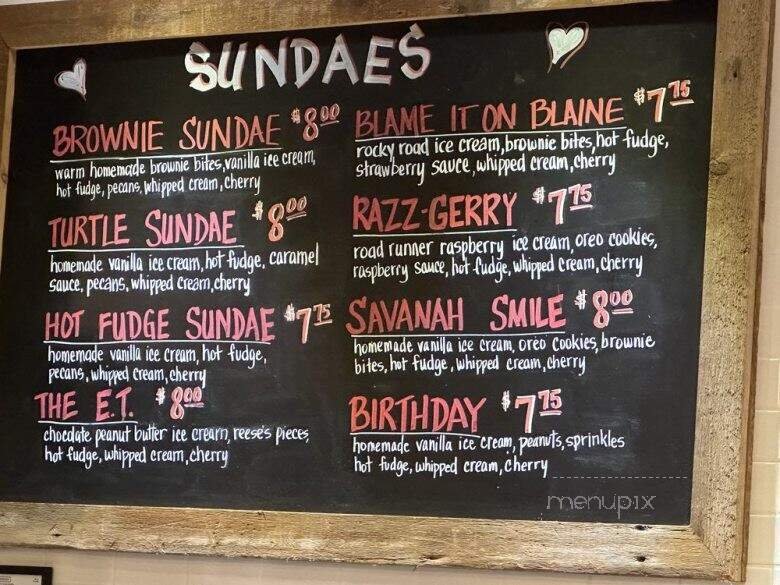 SUNDAES
BROWNIE SUNDAE $8.00
warm homemade brownie bites, vanilla ice cream,
hot fudge, pecans, whipped cream, cherry
TURTLE SUNDAE $8.00
homemade vanilla ice cream, hot fudge, caramel
sauce, pecans, whipped cream, cherry
HOT FUDGE SUNDAE $7.75
homemade vanilla ice cream, hot fudge,
pecans, whipped cream, cherry
THE E.T. $8.00
chocolate peanut butter ice cream, reese's pieces,
hot fudge, whipped cream, cherry
BLAME IT ON BLAINE $7.75
rocky road ice cream, brownie bites, hot fudge,
strawberry sauce, whipped cream, cherry
RAZZ-GERRY $7.75
road runner raspberry ice cream, oreo cookies,
raspberry sauce, hot fudge, whipped cream, cherry
SAVANAH SMILE $8.00
homemade vanilla ice cream, oreo cookies, brownie
bites, hot fudge, whipped cream, cherry
BIRTHDAY $7.75
homemade vanilla ice cream, peanuts, sprinkles
hot fudge, whipped cream, cherry
menupix